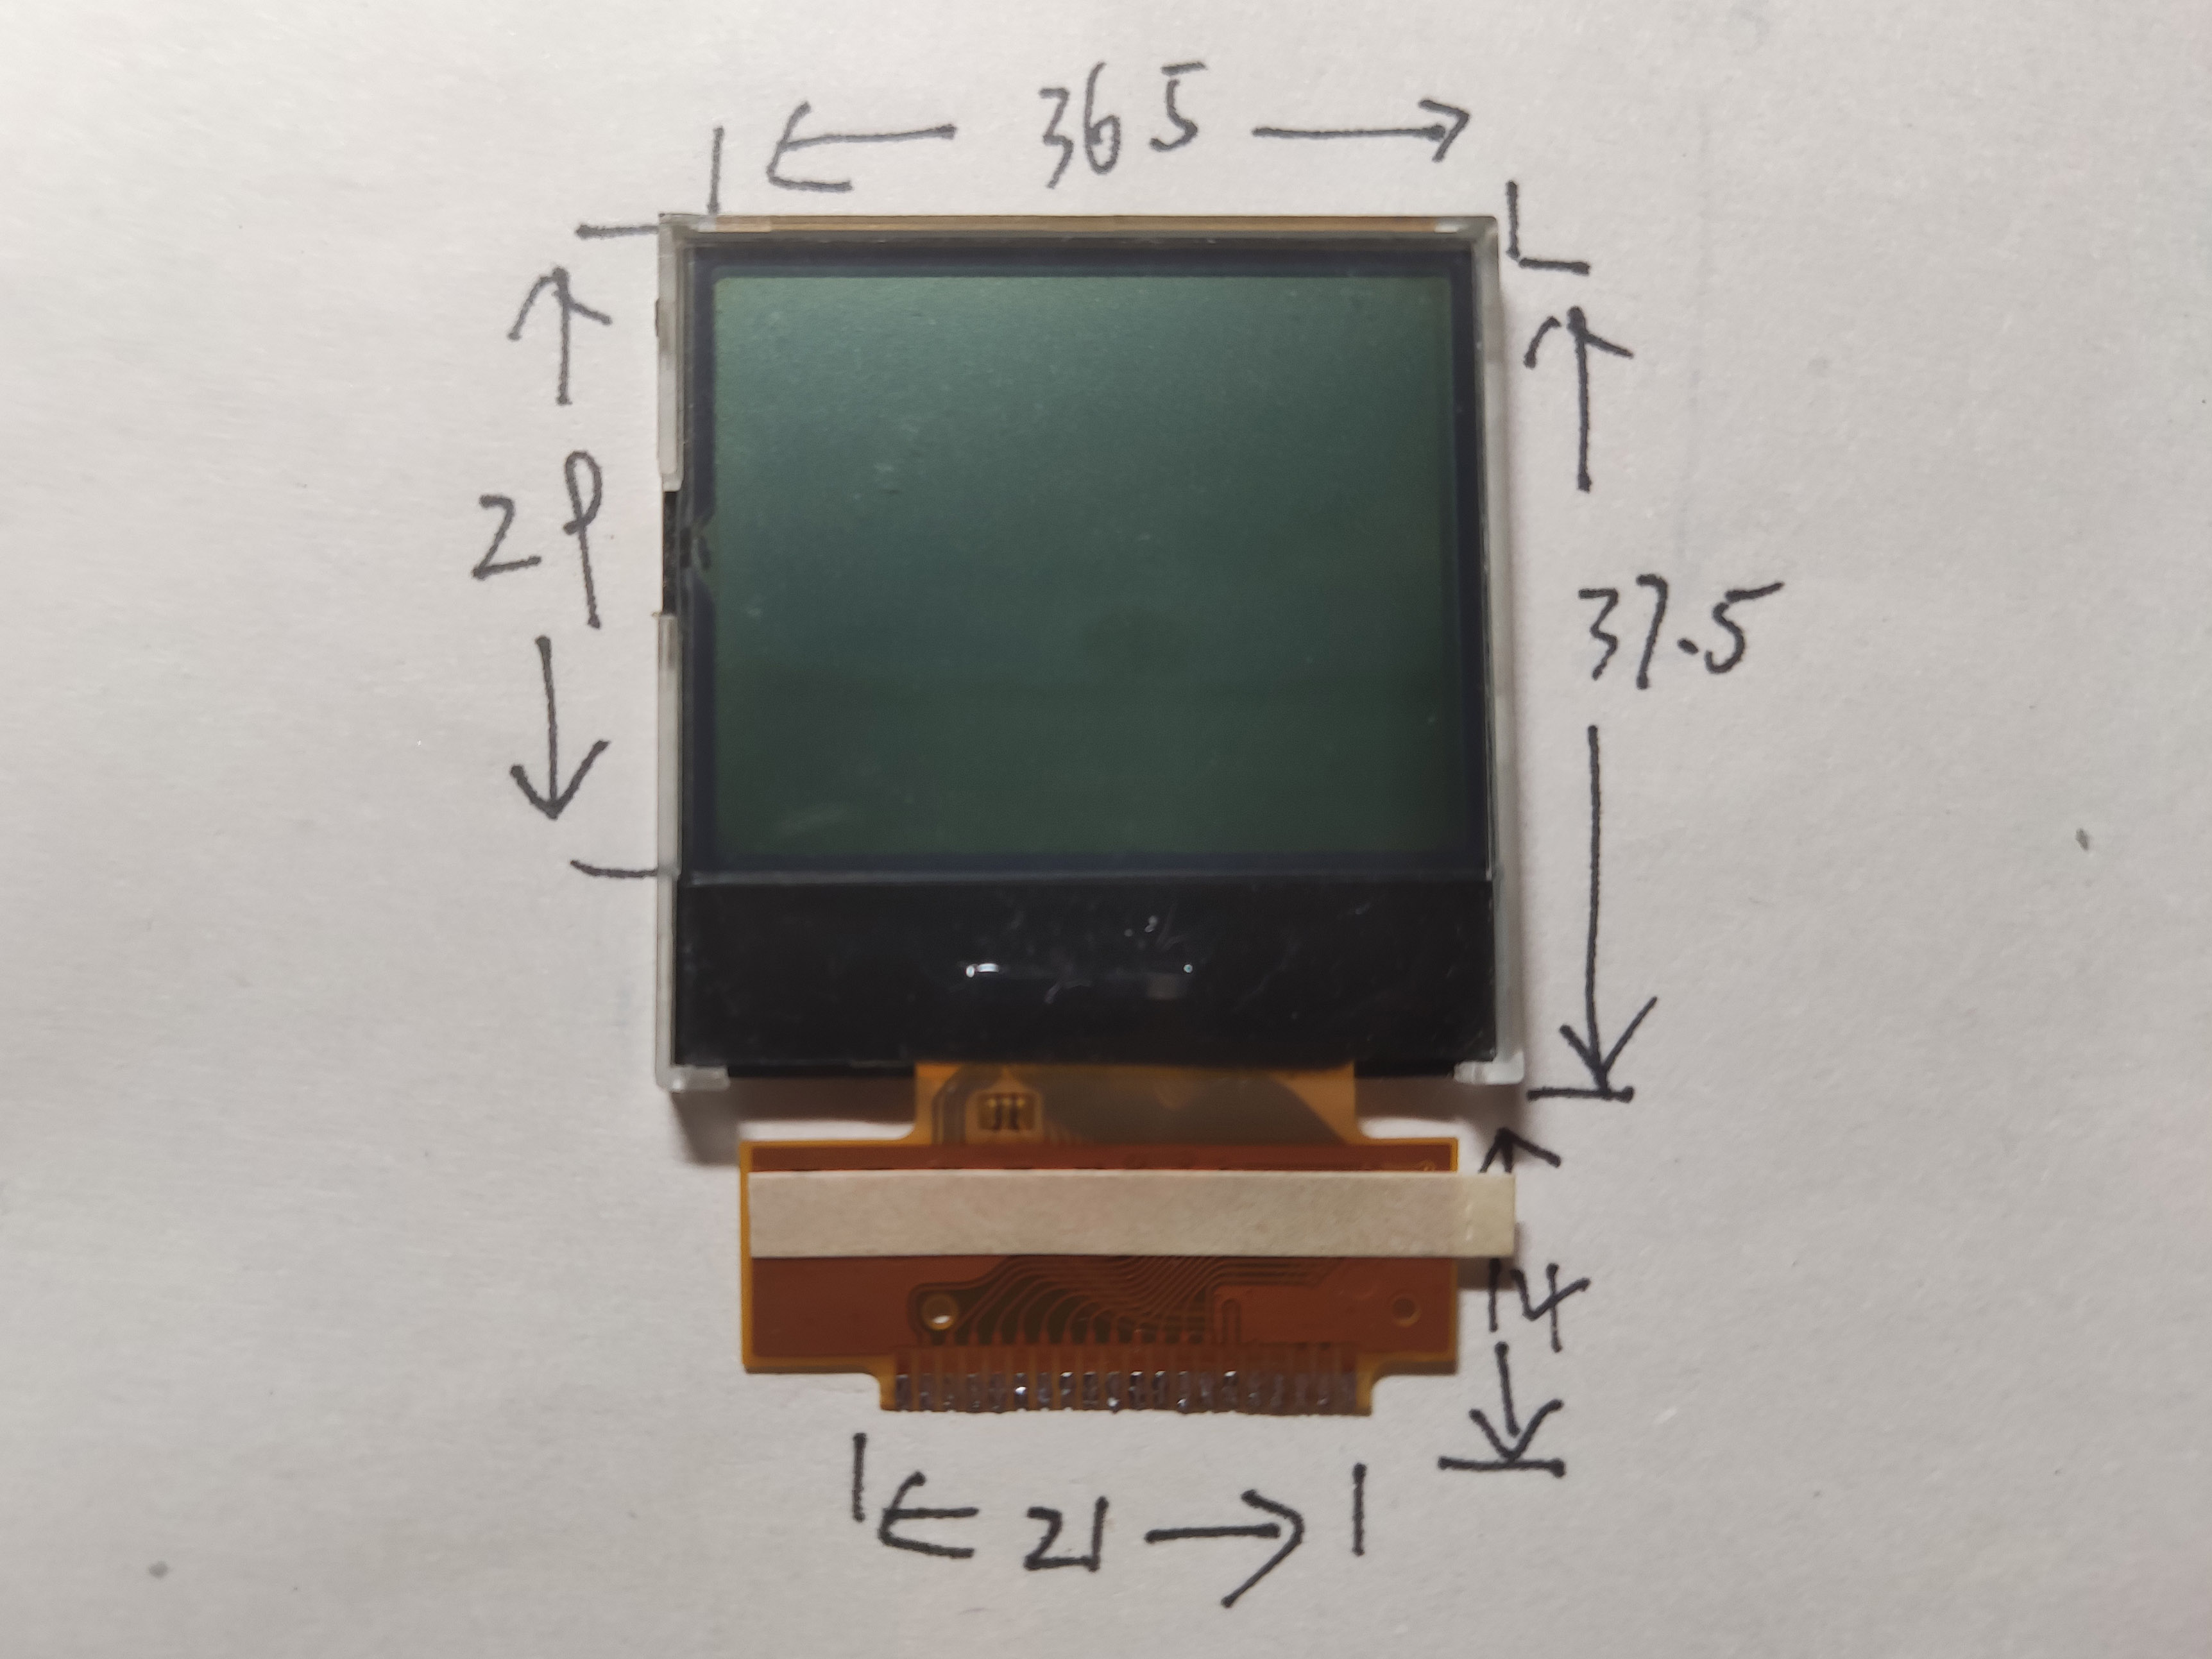 36.5
29
37.5
14
21